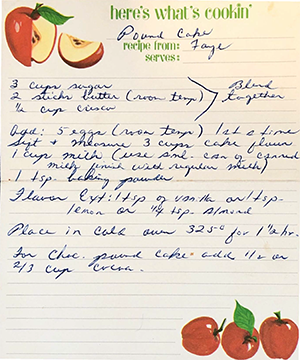 here's what's cookin'
Pound Cake
recipe from: Faye
serves:
3 cups sugar
2 sticks butter (room temp)
½ cup crisco
Blend together
Add: 5 eggs (room temp) 1 at a time
Sift & measure 3 cups cake flour
1 cup milk (use sml. can of canned
milky finish with regular milk)
1 tsp. baking powder
Flavor Ext: 1 tsp of vanilla or 1 tsp.
lemon or ¼ tsp. almond
Place in cold oven 325° for 1½ hr.
For Choc. pound cake add ½ or
2/3 cup cocoa.